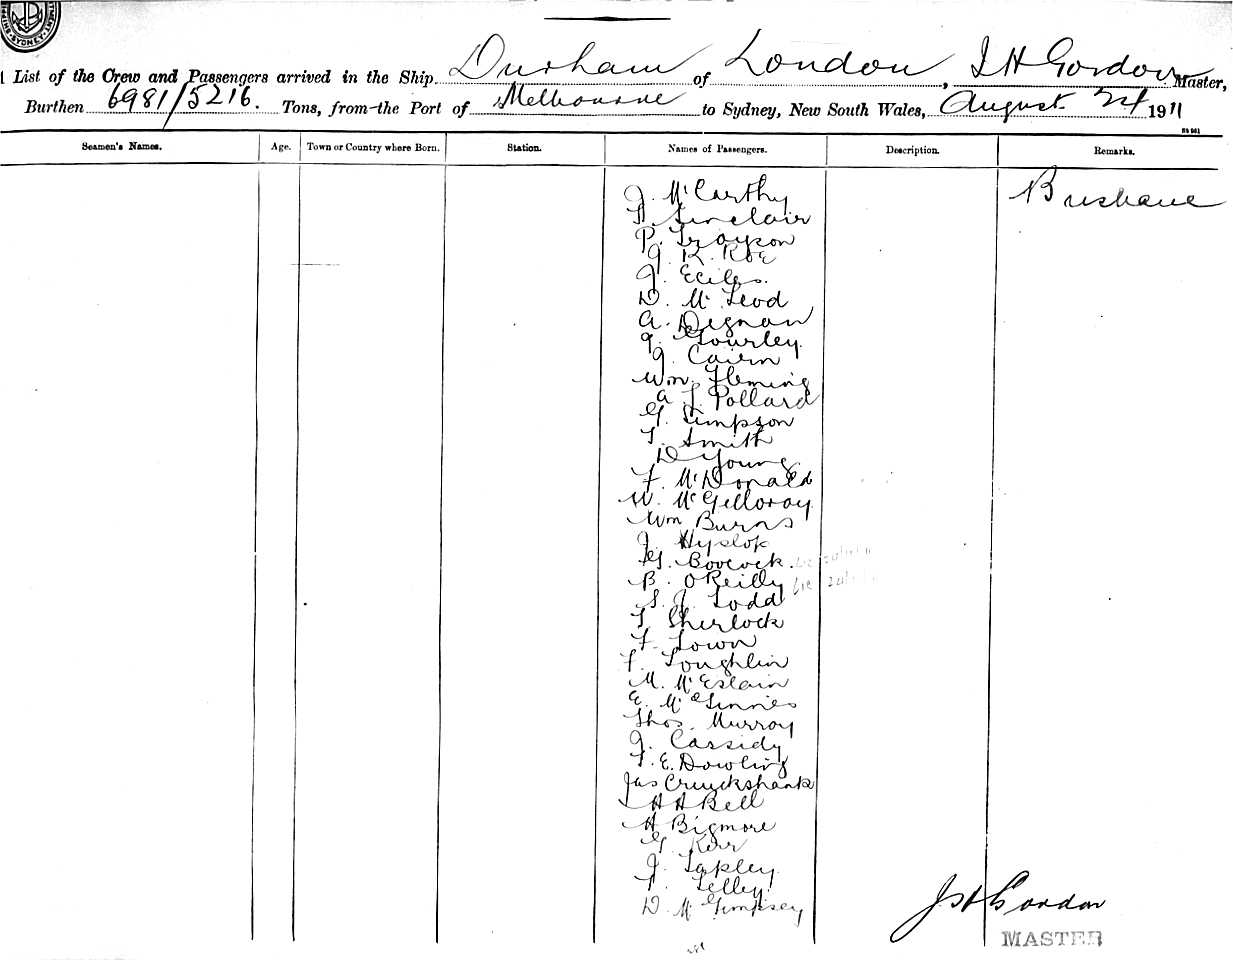 List of the Crew and Passengers arrived in the Ship Durham of London, J H Gordon Master,
Burthen 6981/5216. Tons, from the Port of Melbourne to Sydney, New South Wales, August 24 1911
Seamen's Names. Age. Town or Country where Born. Station. Names of Passengers. Description. Remarks.
J. McCarthy Brisbane
Sinclair
P. Grayson
J. R. Roe
J. Eccles.
D. McLeod
A. Dignan
J. Gourley
J. Cairn
Wm. Fleming
A. J. Pollard
G. Simpson
T. Smith
D Young
F. McDonald
W. McGilloray
Wm Burns
J. Hyslop
G. Boocock.
B. O'Reilly
S. J. Todd
T. Sherlock
F. Town
F. Loughlin
M. McEslain
E. McGinnies
Thos. Murray
J. Cassidy
T. E. Dowling
Jas Cruickshank
H A Bell
H Bigmore
G. Kerr
J. Tapley
T. Lelley
D. McGimpsey
J H Gordon
MASTER